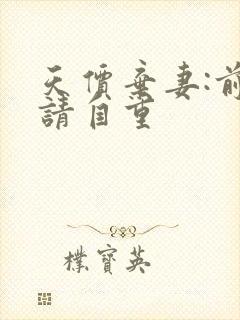 天價棄妻:前
請自重
樸寶英